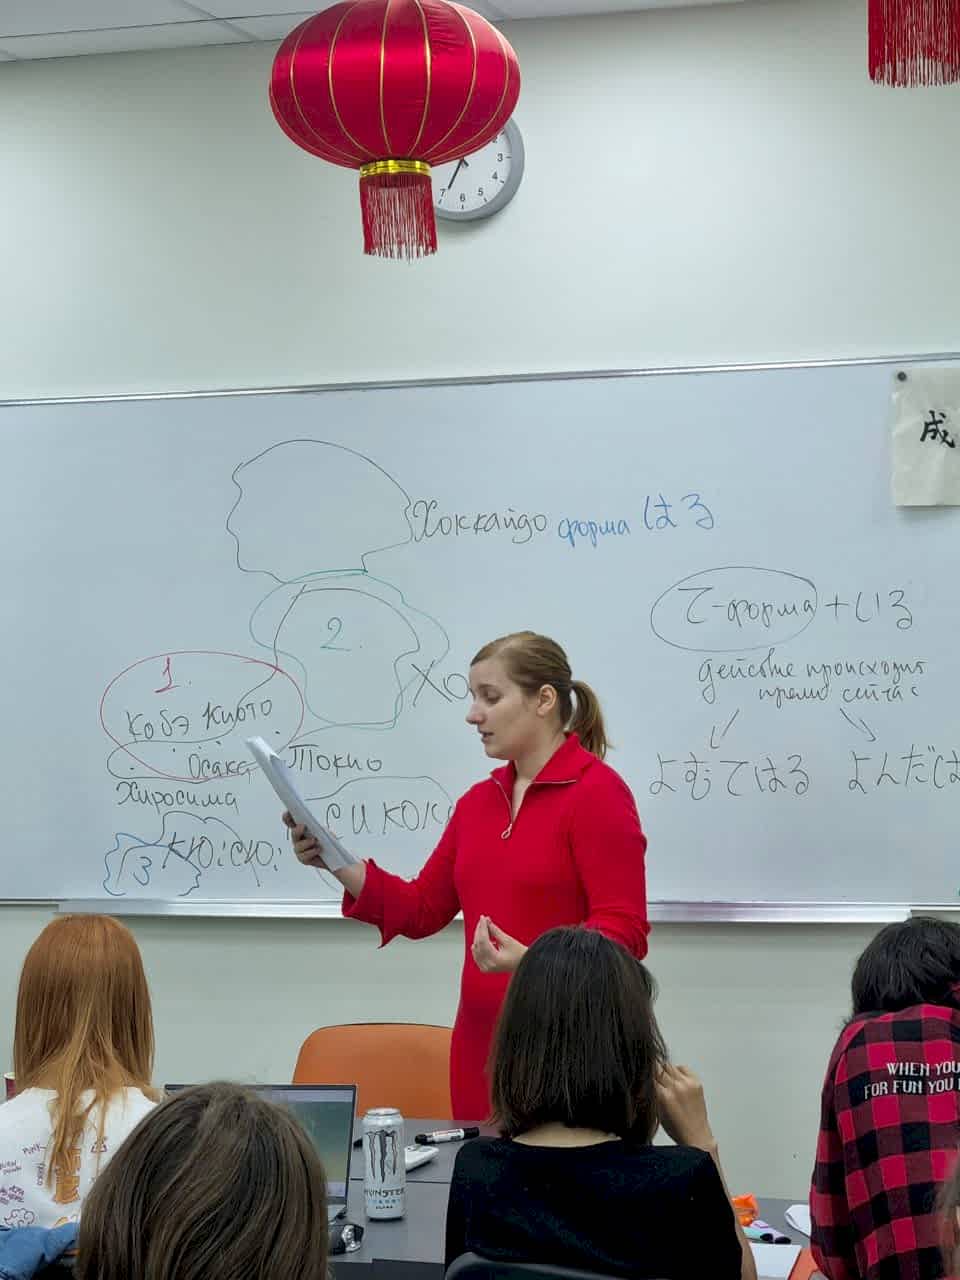 3
4
5
6
7
成
Хоккайдо форма はる
て-форма + いる
действие происходит
прямо сейчас
よむてはる よんだは
2.
1.
Кобэ Киото
Осака Токио
Хо
Хиросима
Сикок
Кюсю
3
WHEN YOU
FOR FUN YOU
PUNK
MONSTER
ULTRA